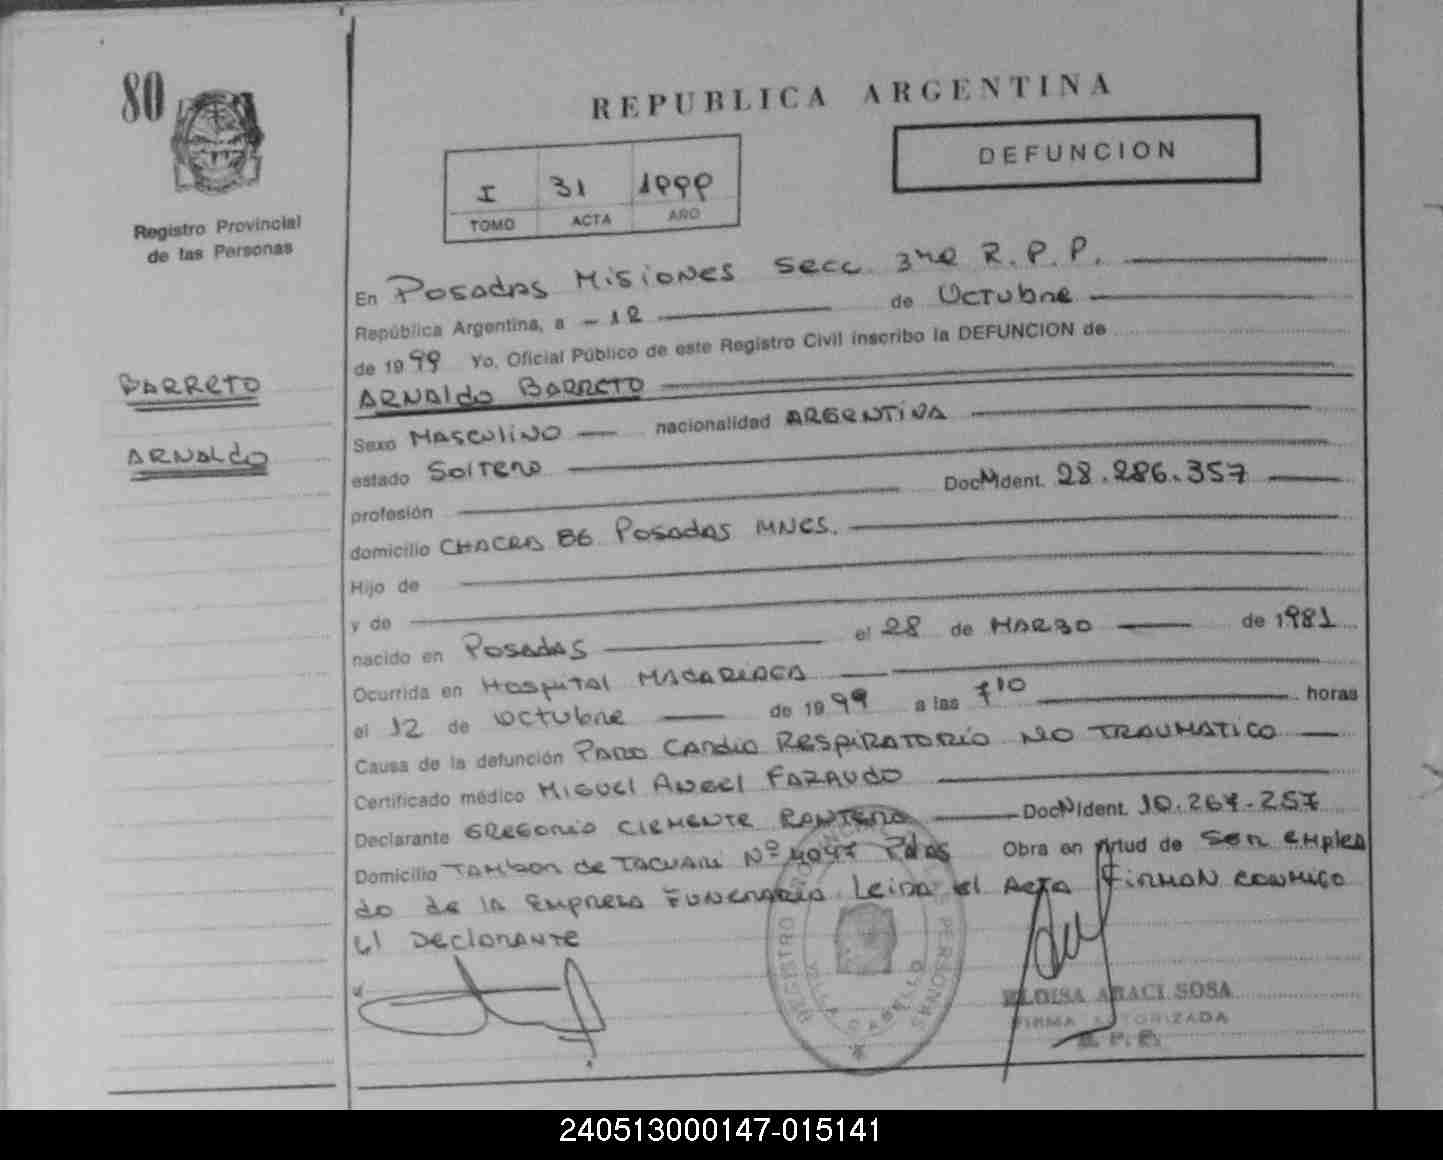 80
REPUBLICA ARGENTINA
DEFUNCION
I 31 1999
TOMO ACTA AÑO
Registro Provincial
de las Personas
En Posadas Misiones Secc. 3ra R.P.P.
República Argentina, a - 12 de Octubre
de 1999 Yo, Oficial Público de este Registro Civil inscribo la DEFUNCION de
BARRETO
ARNALDO BARRETO
Sexo MASCULINO nacionalidad ARGENTINA
ARNALDO
estado Soltero
profesión Doc N Ident. 28.286.357
domicilio CHACRA 86 Posadas MNES.
Hijo de
y de
nacido en Posadas el 28 de MARZO de 1981
Ocurrida en Hospital MADARIAGA
el 12 de octubre de 1999 a las 7 10 horas
Causa de la defunción Paro Cardio RESPIRATORIO NO TRAUMATICO
Certificado médico MIGUEL ANGEL FARAUDO
Declarante GREGORIO CLEMENTE Doc N Ident. 10.264.257
Domicilio TAMBOR de TACUARI Nº 4047 Pdas Obra en virtud de Ser emplea
do de la Empresa FUNERARIA. Leida el Acta FIRMAN CONMIGO
el DECLARANTE
REGISTRO PROVINCIAL DE LAS PERSONAS
VILLA CABELLO
ELOISA ARACI SOSA
FIRMA AUTORIZADA
R. P. P.
240513000147-015141